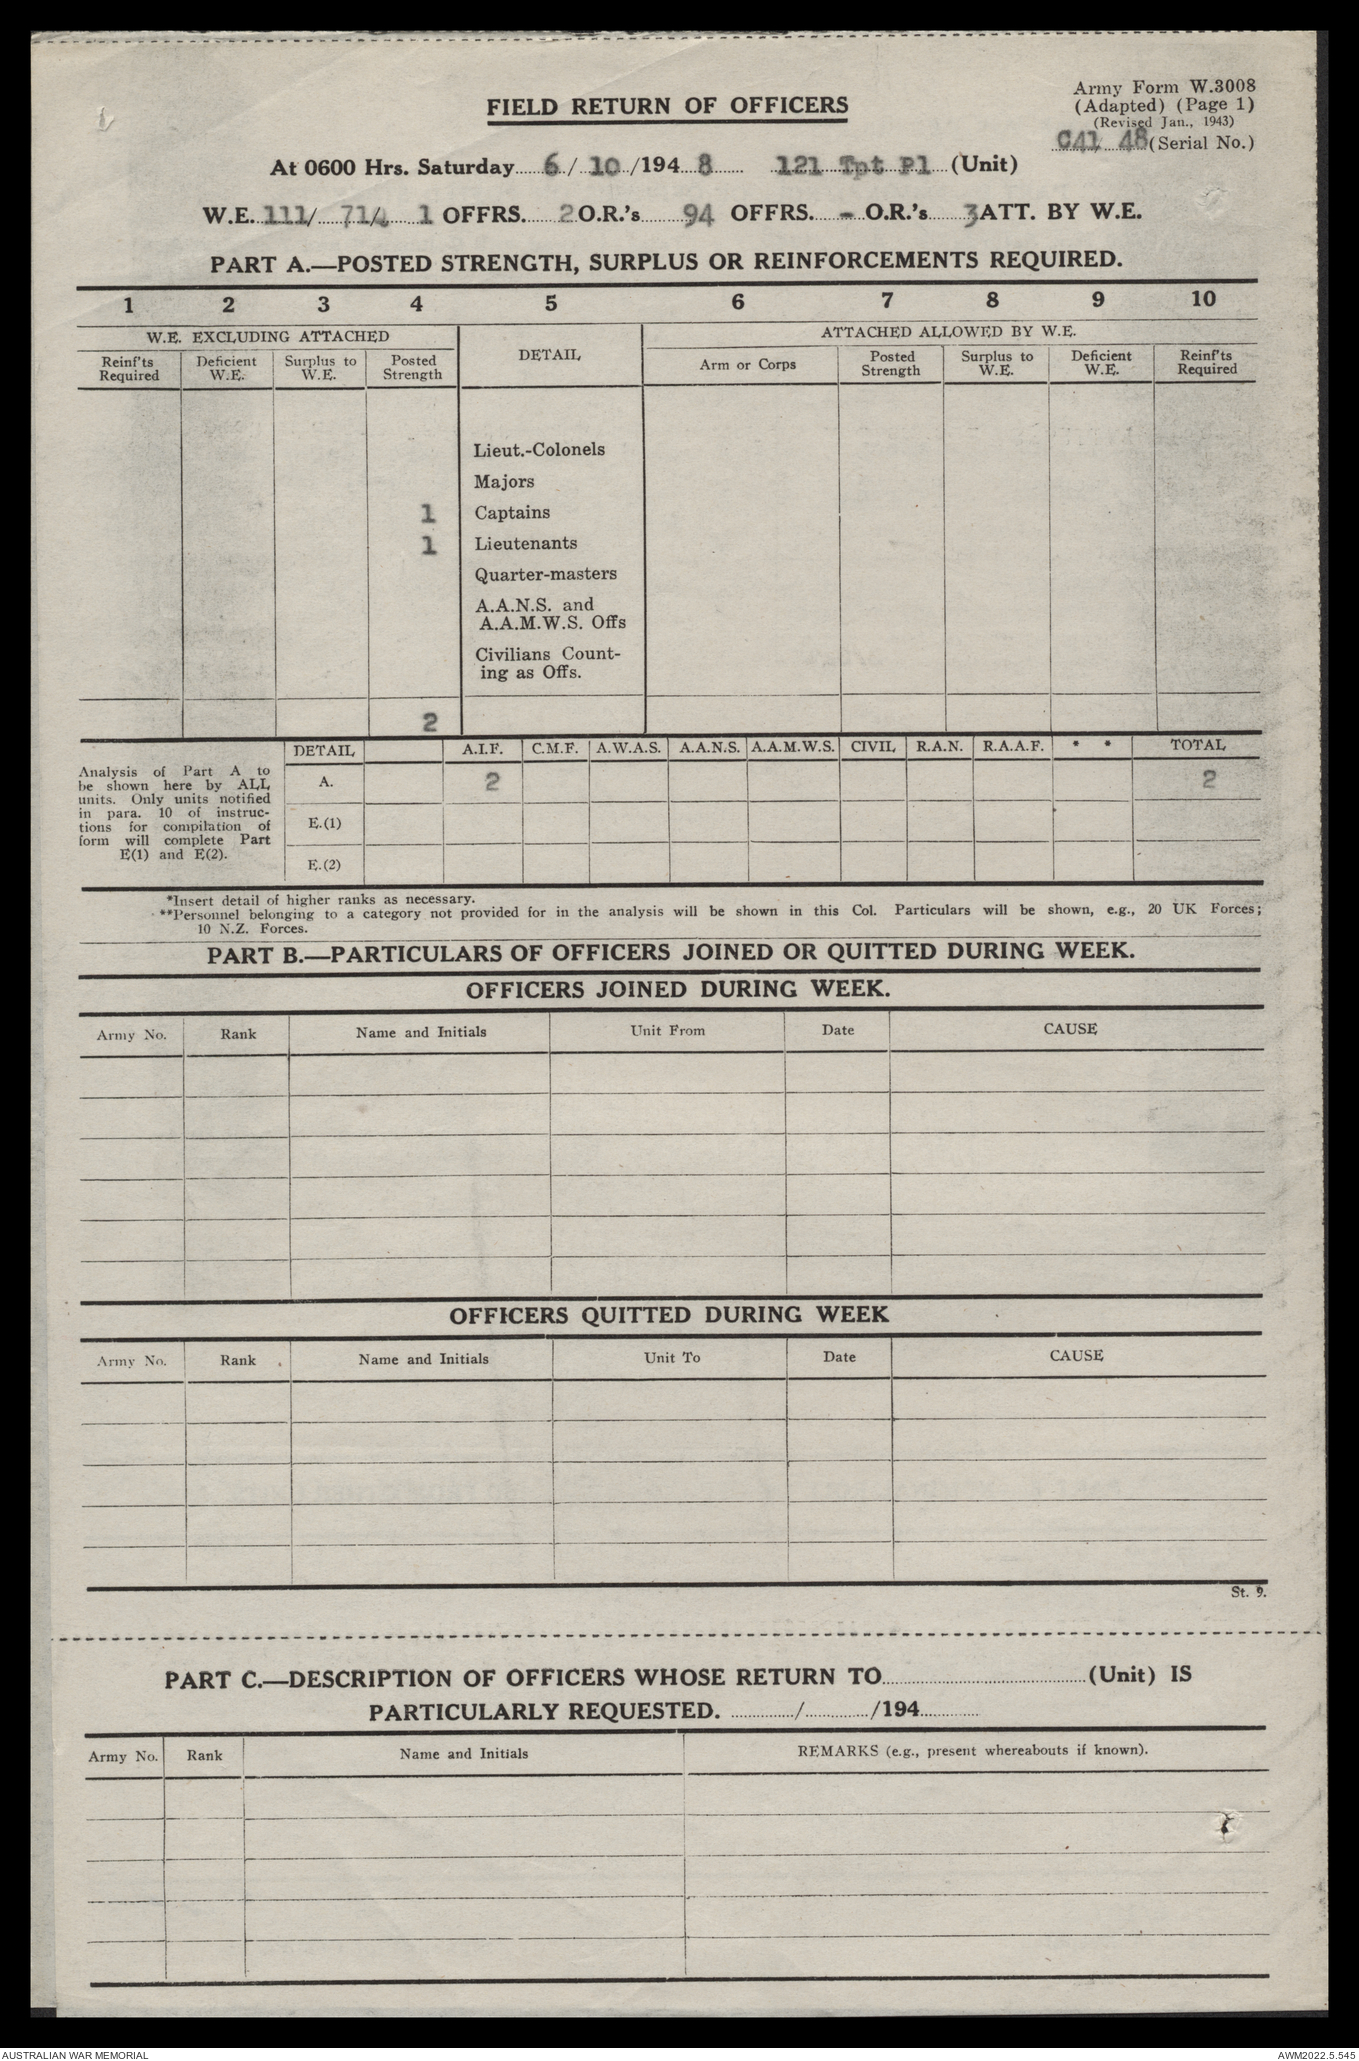 FIELD RETURN OF OFFICERS
Army Form W.3008
(Adapted) (Page 1)
(Revised Jan., 1943)
C41 48 (Serial No.)
At 0600 Hrs. Saturday 6 / 10 /194 8 121 Tpt Pl (Unit)
W.E. 111/ 71/ 1 OFFRS. 2 O.R.'s 94 OFFRS. - O.R.'s 3 ATT. BY W.E.
PART A.—POSTED STRENGTH, SURPLUS OR REINFORCEMENTS REQUIRED.
1 2 3 4 5 6 7 8 9 10
W.E. EXCLUDING ATTACHED DETAIL ATTACHED ALLOWED BY W.E.
Reinf'ts Required Deficient W.E. Surplus to W.E. Posted Strength Arm or Corps Posted Strength Surplus to W.E. Deficient W.E. Reinf'ts Required
Lieut.-Colonels
Majors
1 Captains
1 Lieutenants
Quarter-masters
A.A.N.S. and
A.A.M.W.S. Offs
Civilians Count-
ing as Offs.
2
DETAIL A.I.F. C.M.F. A.W.A.S. A.A.N.S. A.A.M.W.S. CIVIL R.A.N. R.A.A.F. * * TOTAL
Analysis of Part A to
be shown here by ALL
units. Only units notified
in para. 10 of instruc-
tions for compilation of
form will complete Part
E(1) and E(2).
A. 2 2
E.(1)
E.(2)
*Insert detail of higher ranks as necessary.
**Personnel belonging to a category not provided for in the analysis will be shown in this Col. Particulars will be shown, e.g., 20 UK Forces;
10 N.Z. Forces.
PART B.—PARTICULARS OF OFFICERS JOINED OR QUITTED DURING WEEK.
OFFICERS JOINED DURING WEEK.
Army No. Rank Name and Initials Unit From Date CAUSE
OFFICERS QUITTED DURING WEEK
Army No. Rank Name and Initials Unit To Date CAUSE
St. 9.
PART C.—DESCRIPTION OF OFFICERS WHOSE RETURN TO (Unit) IS
PARTICULARLY REQUESTED. / /194
Army No. Rank Name and Initials REMARKS (e.g., present whereabouts if known).
AUSTRALIAN WAR MEMORIAL AWM2022.5.545